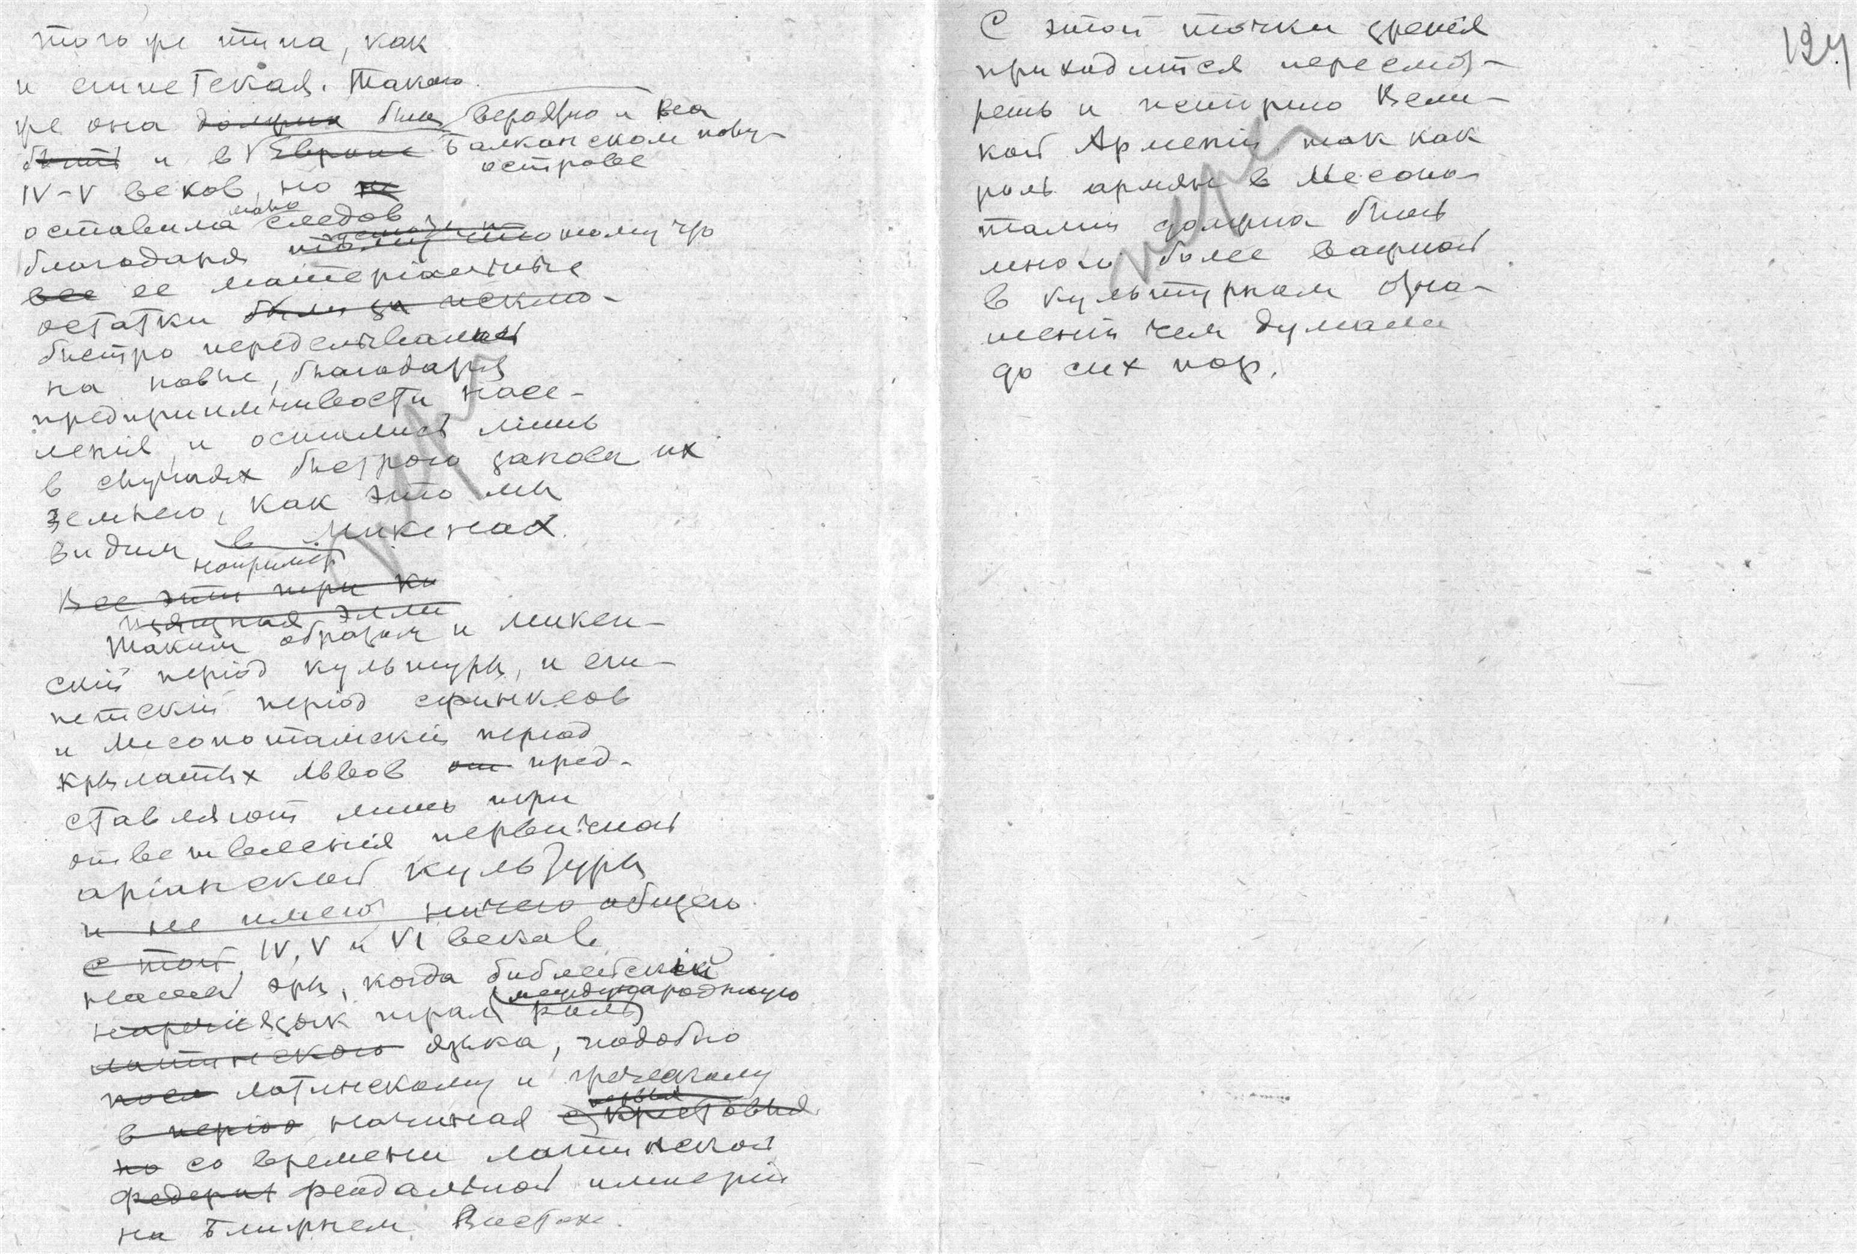 того же типа, как
и египетская. Такою
же она должна была вероятно и на
быть и в Европе Балканском полу-
острове
IV–V веков, но не
оставила мало следов
благодаря тому что
все ее матеріальные
остатки были за исклю-
быстро переделывались
на новые, благодаря
предприимчивости насе-
ленія, и остались лишь
в случаях быстрого заноса их
землею, как это мы
видим в Микенах
например
Все эти три ку
Таким образом и микен-
скій період культуры, и еги-
петскій період сфинксов
и Месопотамскій період
крылатых львов от пред-
ставляют лишь три
ответвленія первичной
аріанской культуры
и не имеют ничего общего
с той IV, V и VI веков
нашей эры, когда библейскій
язык играл роль международную
латинского языка, подобно
посл латинскому и греческому
в період начиная с крестовых
по со времени латинской
федерат феодальной имперіи
на Ближнем Востоке.
124
С этой точки зренія
приходится пересмот-
реть и исторію Вели-
кой Арменіи так как
роль армян в Месопо-
таміи должна быть
много более важной
в культурном отно-
шеніи чем думали
до сих пор.